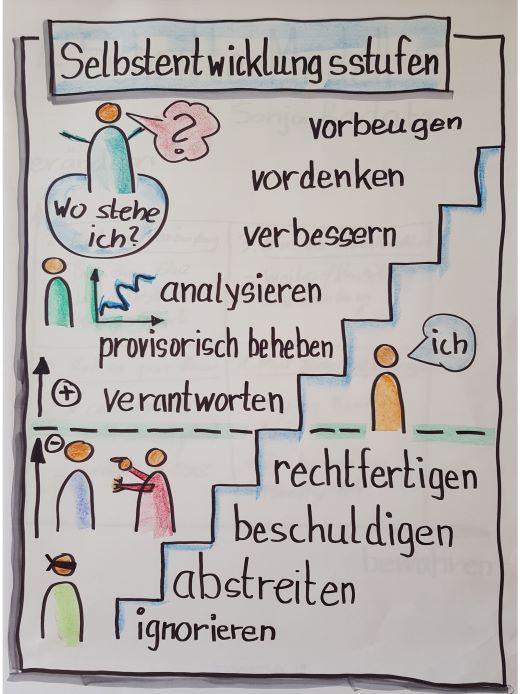 Selbstentwicklungsstufen
?
vorbeugen
vordenken
Wo stehe
ich?
verbessern
analysieren
provisorisch beheben
ich
+ verantworten
-
rechtfertigen
beschuldigen
abstreiten
ignorieren